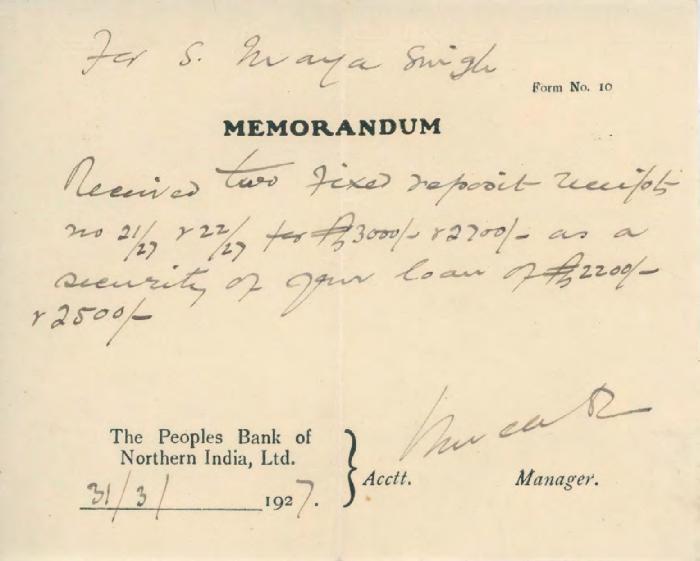 For S. Maya Singh
Form No. 10
MEMORANDUM
Received two Fixed deposit receipts
no 21/27 & 22/27 for Rs 3000/- & 2700/- as a
security of your loan of Rs 2200/-
& 2500/-
The Peoples Bank of
Northern India, Ltd.
31/3/ 1927.
Acctt. Manager.